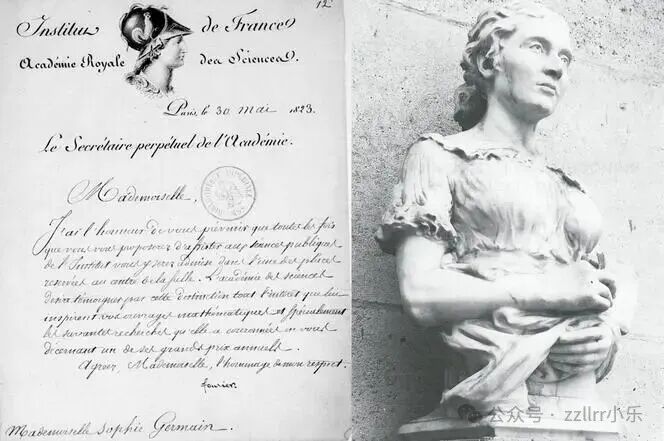 12
Institut de France
Académie Royale des Sciences.
Paris, le 30 mai 1823.
Le Secrétaire perpétuel de l'Académie.
Mademoiselle,
J'ai l'honneur de vous prévenir que toutes les fois
que vous vous proposerez d'assister aux séances publiques
de l'Institut vous y serez admise dans l'une des places
reservées au centre de la salle. L'académie des sciences
desire témoigner par cette distinction tout l'intérêt que lui
inspirent vos ouvrages mathématiques et spécialement
les savantes recherches qu'elle a couronnées en vous
décernant un de ses grands prix annuels.
Agréez, Mademoiselle, l'hommage de mon respect.
fourier
Mademoiselle Sophie Germain.
公众号 · zzllrr小乐